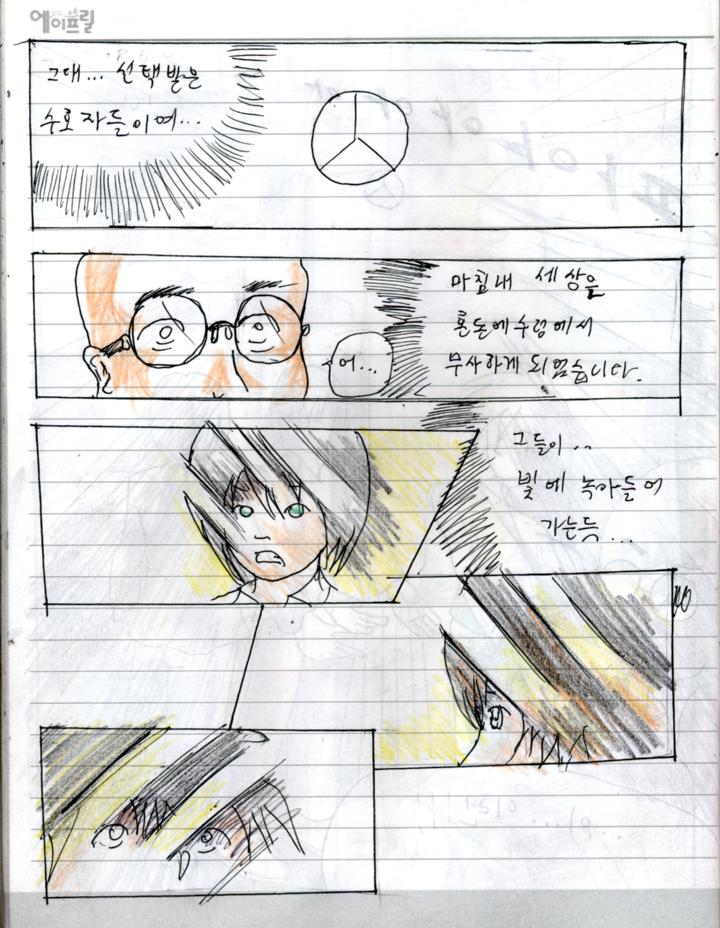 에이프릴
그대... 선택받은
수호자들이여...
마침내 세상을
혼돈에 수렁에서
무사하게 되었습니다.
어...
그들이..
빛에 녹아들어
가는듯...